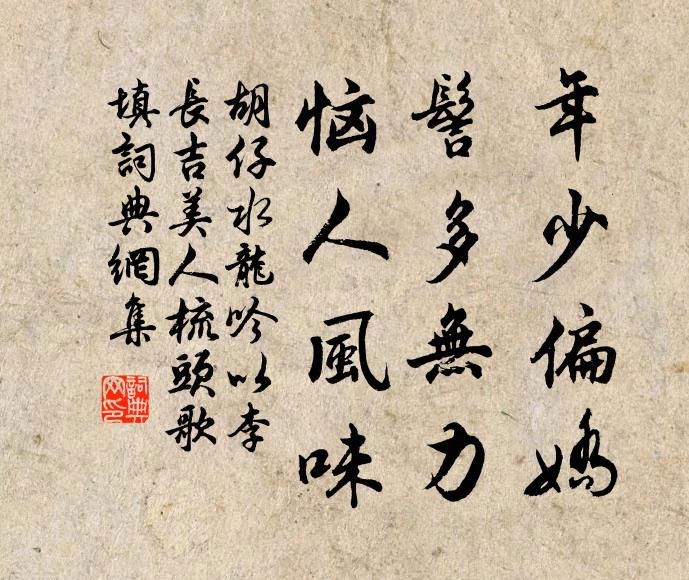 年少偏嬌
髻多無力
恼人風味
胡仔水龍吟以李
長吉美人梳頭歌
填詞典網集
詞典
网印